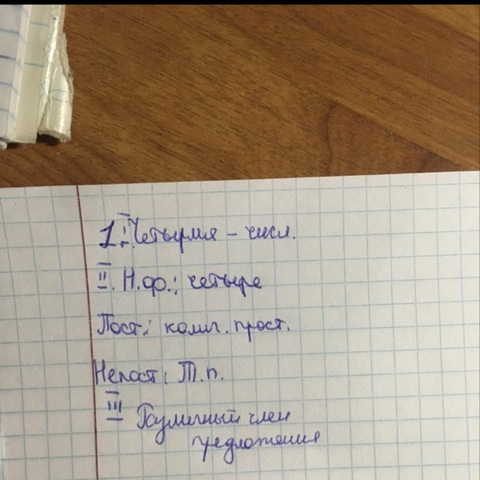 1. I. Четырмя – числ.
II. Н.ф.: четыре
Пост.: колич. прост.
Непост: Т.п.
III
член
предложения